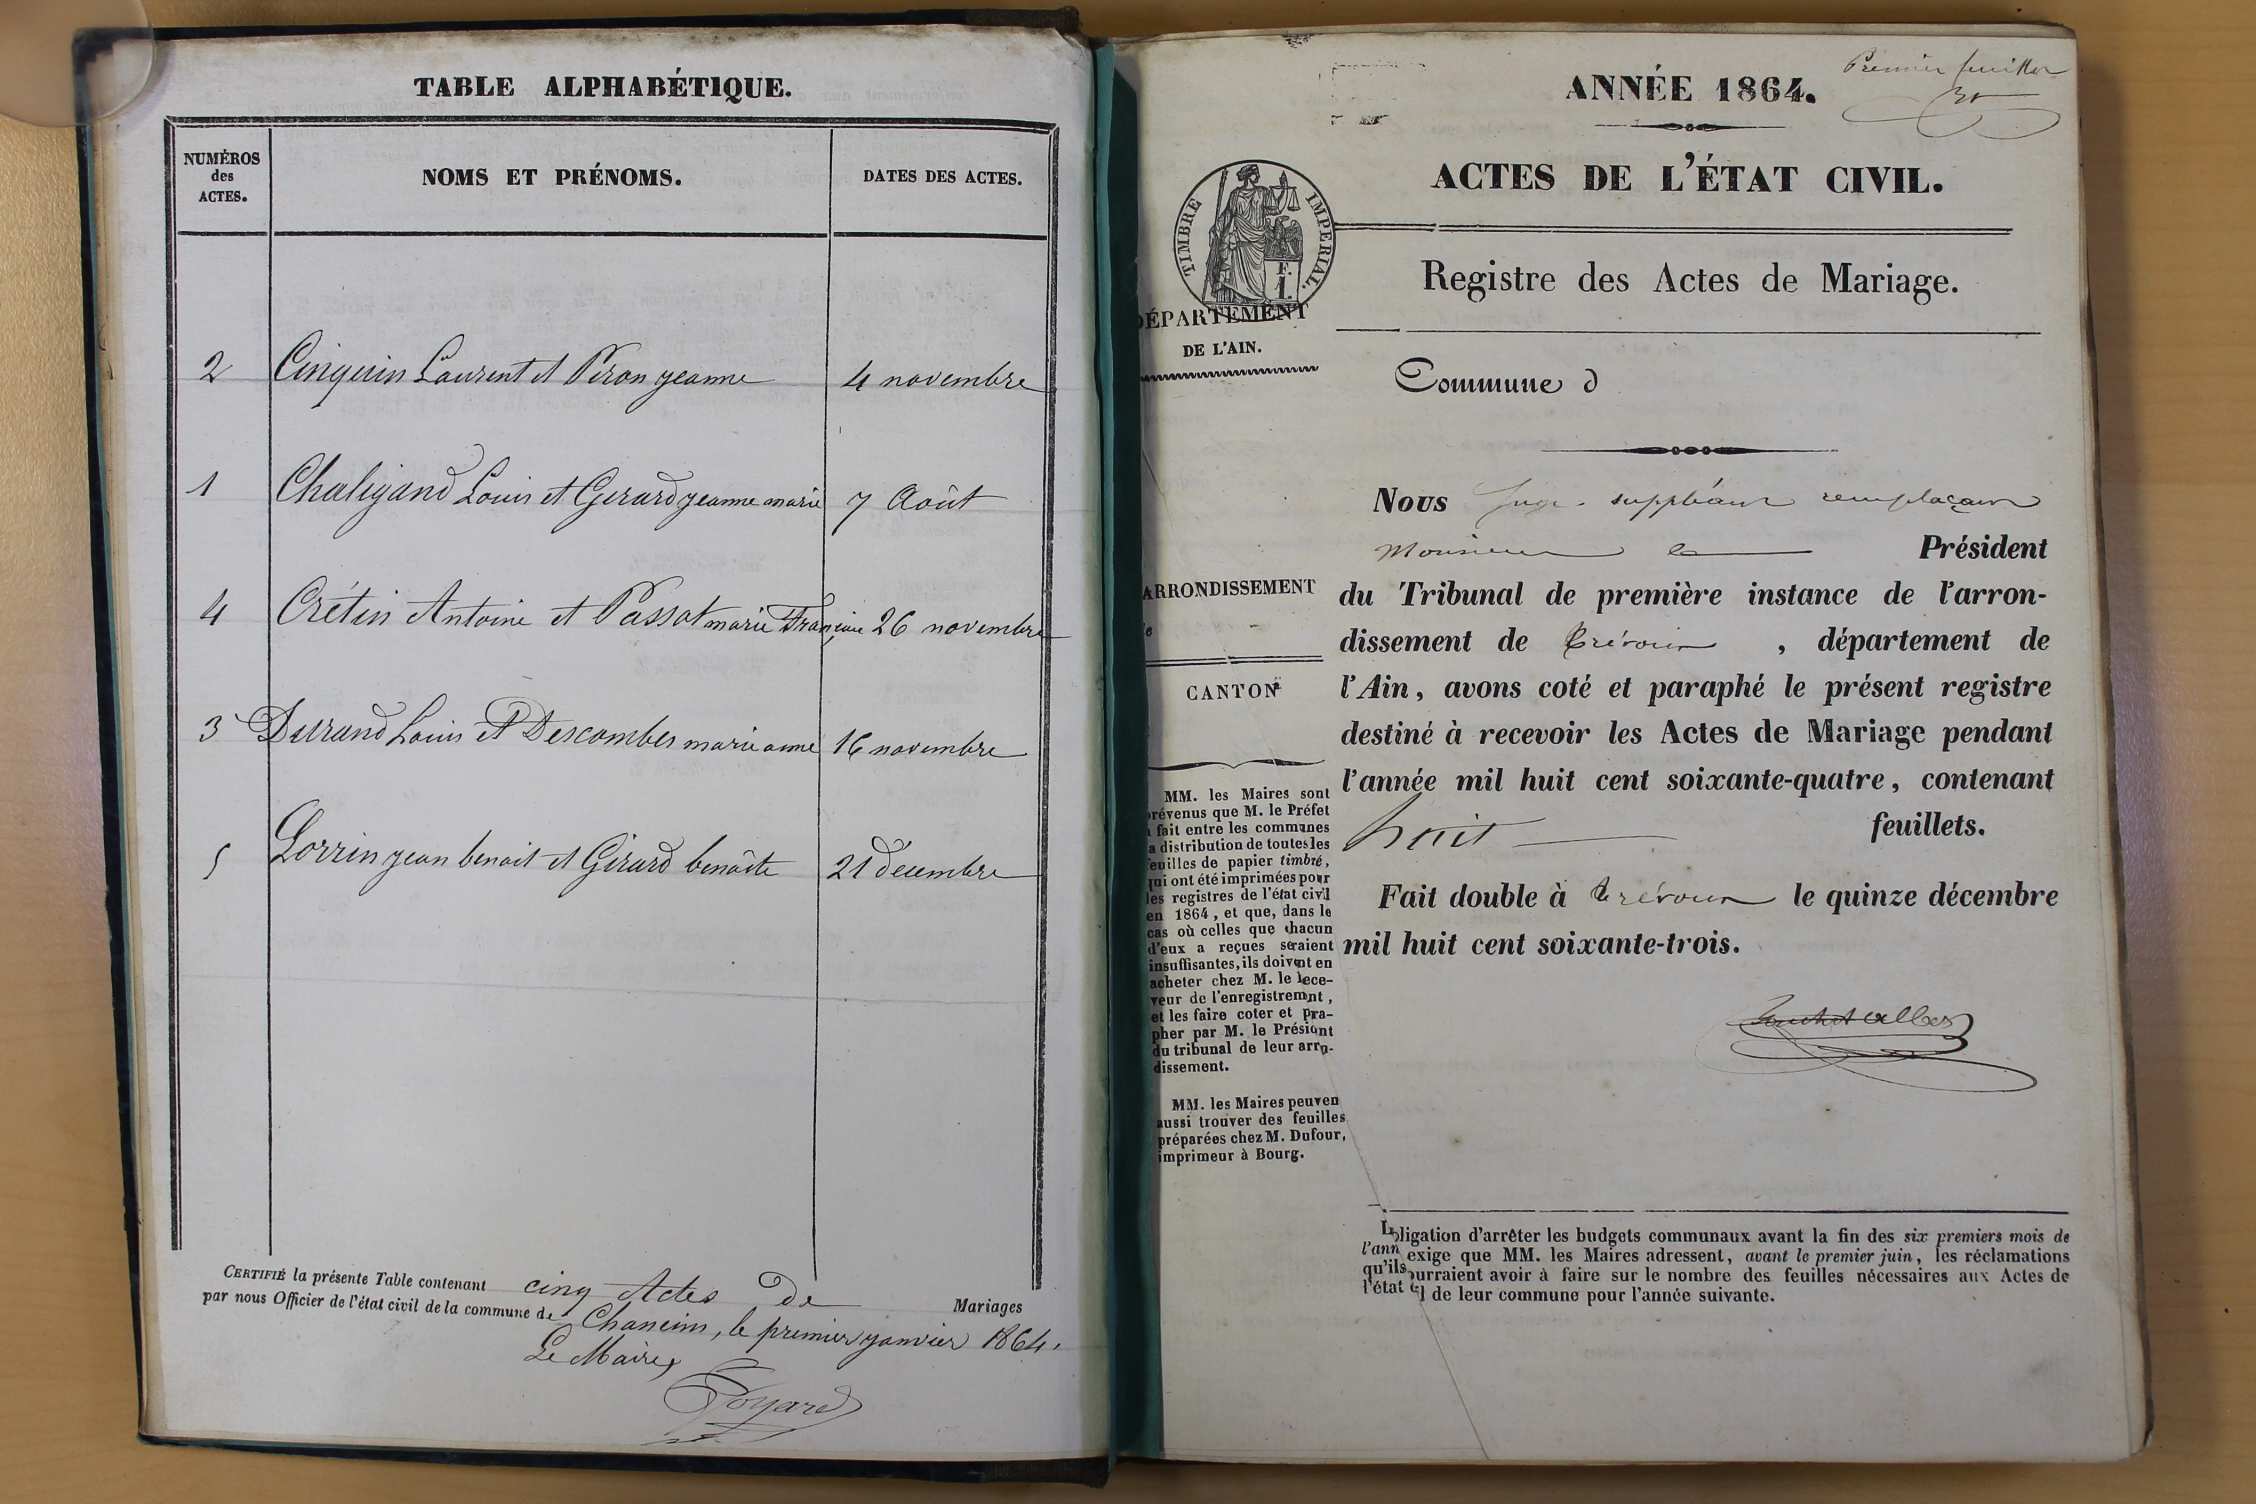 TABLE ALPHABÉTIQUE.
NUMÉROS
des
ACTES.
NOMS ET PRÉNOMS.
DATES DES ACTES.
2 Cinquin Laurent et Péron jeanne 4 novembre
1 Chaligand Louis et Gerard jeanne marie 7 Août
4 Crétin Antoine et Passot marie Françoise 26 novembre
3 Durand Louis et Descombes marie anne 16 novembre
5 Lorrin jean benoit et Girard benoite 21 décembre
CERTIFIÉ la présente Table contenant cinq Actes de Mariages
par nous Officier de l'état civil de la commune de Chaneins, le premier janvier 1864.
Le Maire,
Poyard
Premier feuillet
ANNÉE 1864.
ACTES DE L'ÉTAT CIVIL.
TIMBRE IMPERIAL.
F.
1.
Registre des Actes de Mariage.
DÉPARTEMENT
DE L'AIN.
Commune d
Nous Juge suppléant remplaçant
Monsieur le Président
du Tribunal de première instance de l'arron-
dissement de Trévoux , département de
l'Ain, avons coté et paraphé le présent registre
destiné à recevoir les Actes de Mariage pendant
l'année mil huit cent soixante-quatre, contenant
huit feuillets.
Fait double à Trévoux le quinze décembre
mil huit cent soixante-trois.
ARRONDISSEMENT
CANTON
MM. les Maires sont
prévenus que M. le Préfet
a fait entre les communes
la distribution de toutes les
feuilles de papier timbré,
qui ont été imprimées pour
les registres de l'état civil
en 1864, et que, dans le
cas où celles que chacun
d'eux a reçues seraient
insuffisantes, ils doivent en
acheter chez M. le rece-
veur de l'enregistremnt,
et les faire coter et para-
pher par M. le Présidnt
du tribunal de leur arron-
dissement.
MM. les Maires peuven
aussi trouver des feuilles
préparées chez M. Dufour,
imprimeur à Bourg.
L'obligation d'arrêter les budgets communaux avant la fin des six premiers mois de
l'ann exige que MM. les Maires adressent, avant le premier juin, les réclamations
qu'ils pourraient avoir à faire sur le nombre des feuilles nécessaires aux Actes de
l'état cl de leur commune pour l'année suivante.